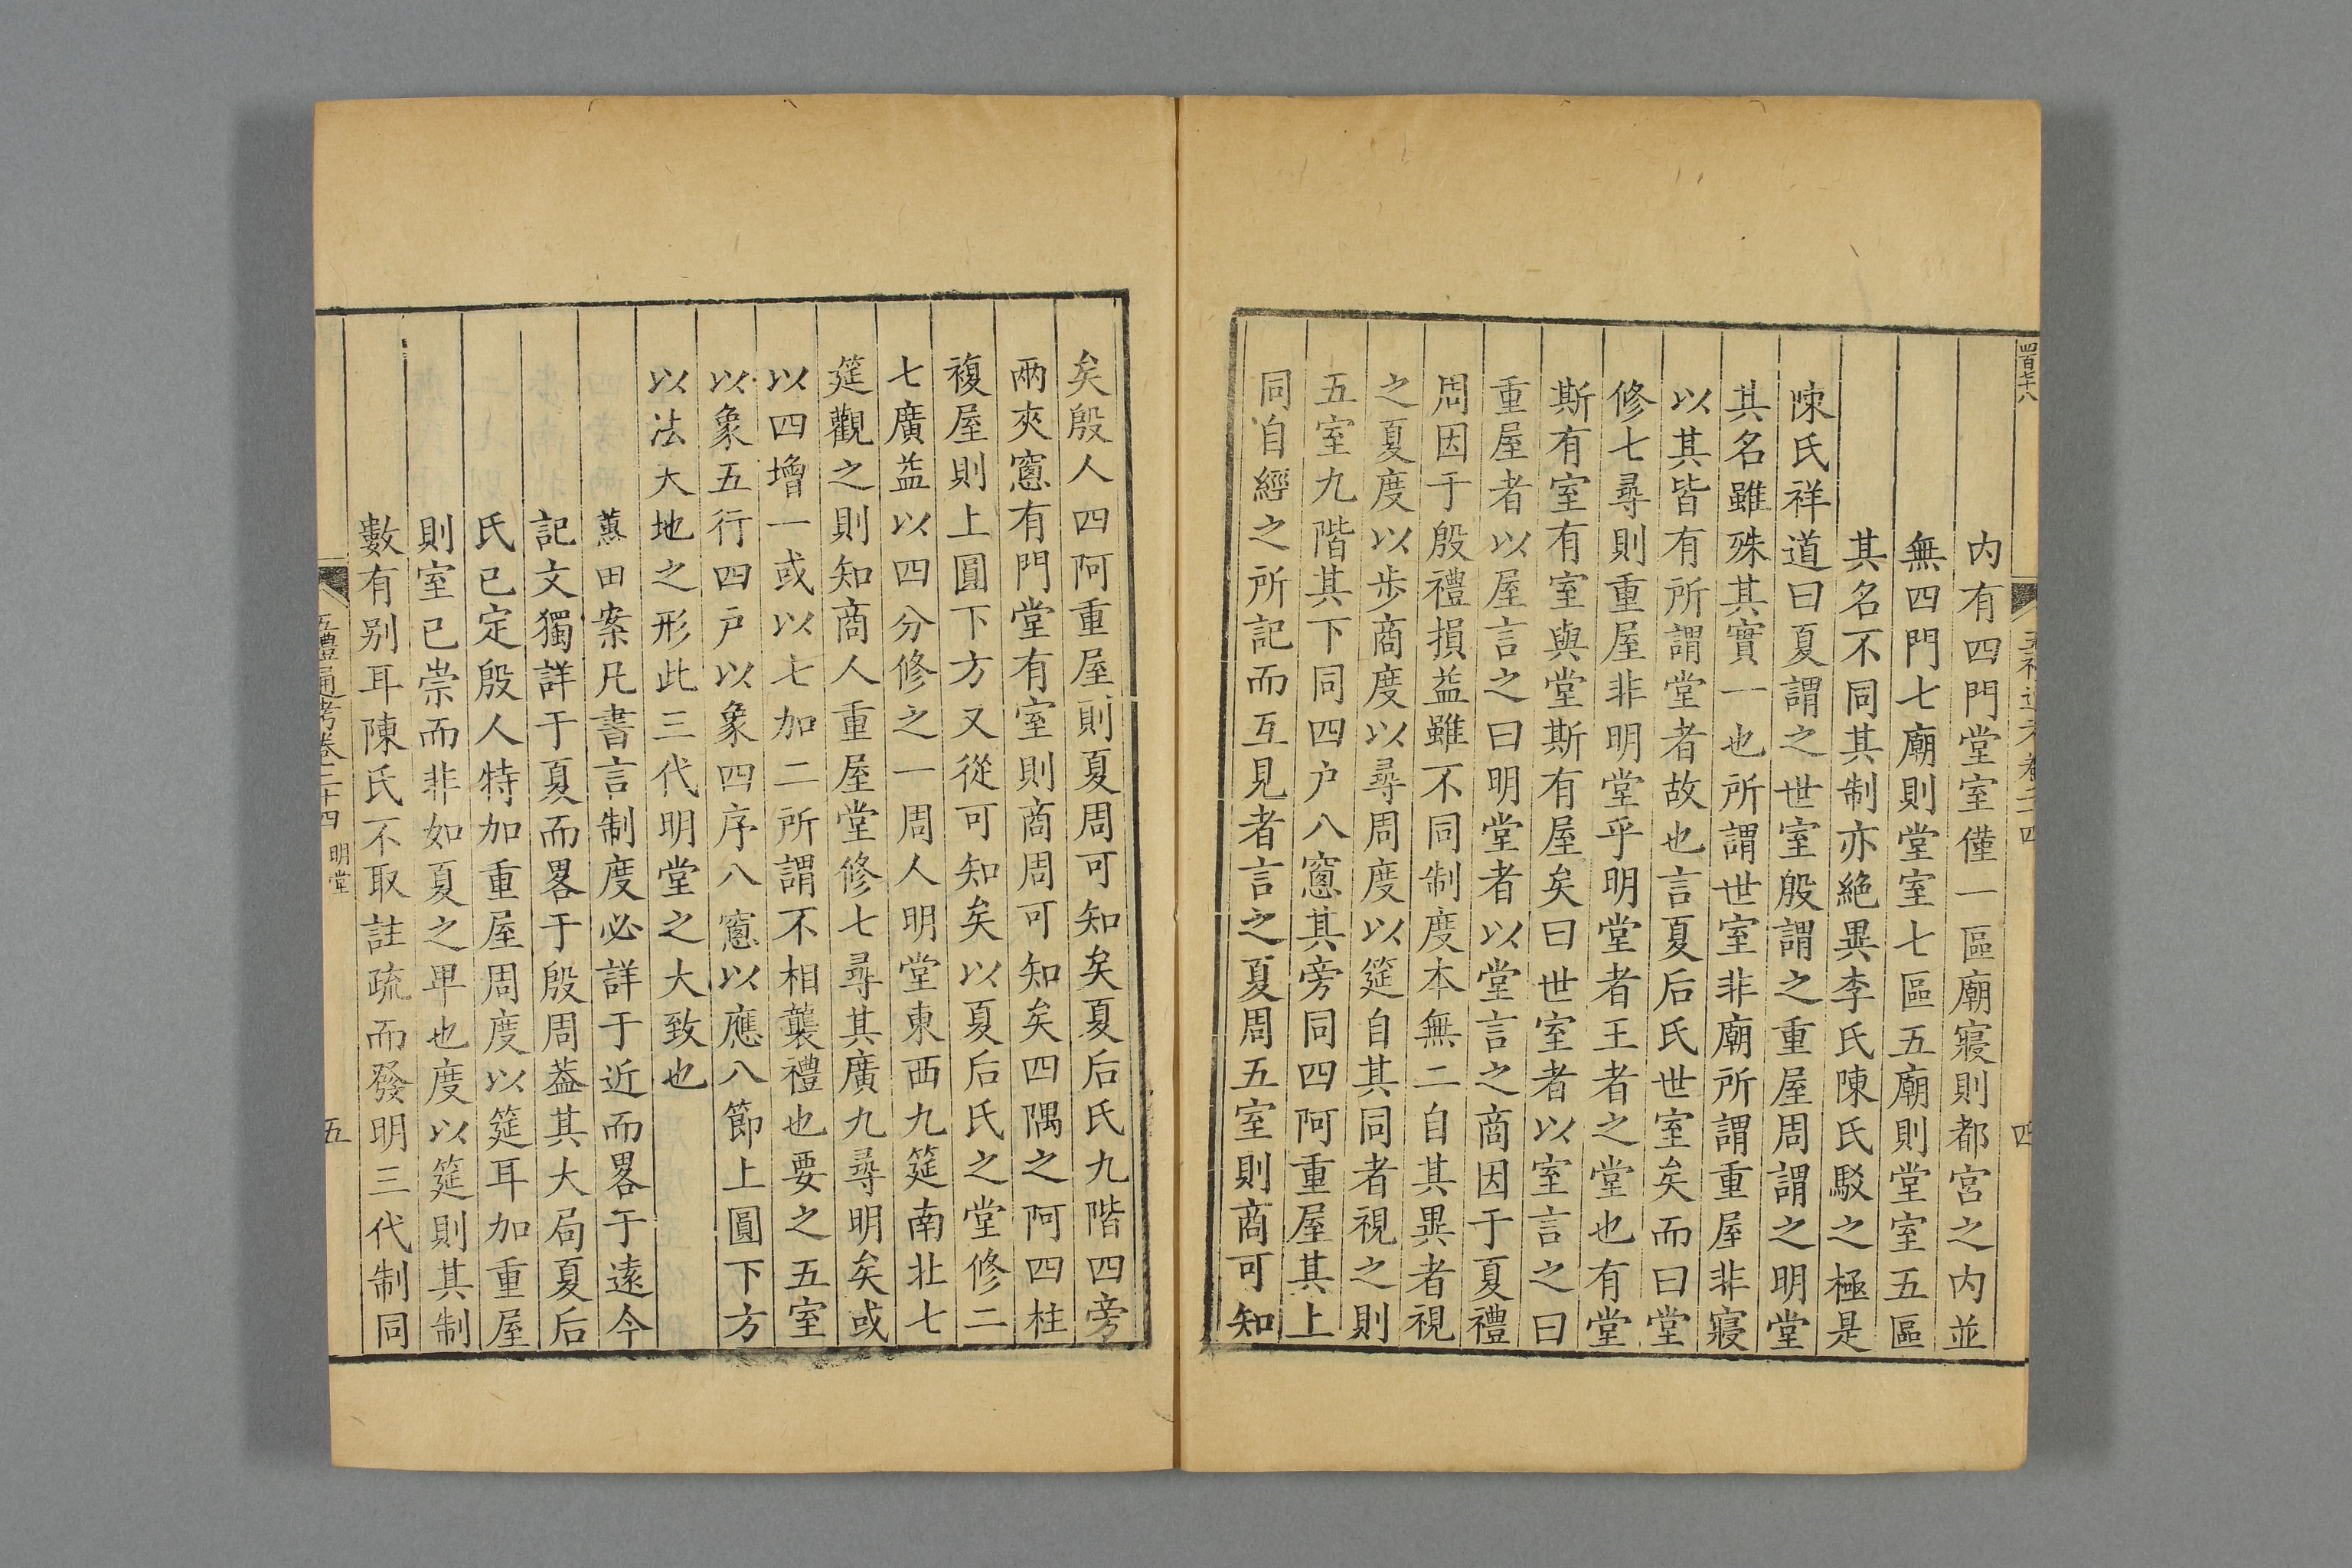 四百七十八
四
内有四門堂室僅一區廟寢則都宮之内並
無四門七廟則堂室七區五廟則堂室五區
其名不同其制亦絶異李氏陳氏駁之極是
陳氏祥道曰夏謂之世室殷謂之重屋周謂之明堂
其名雖殊其實一也所謂世室非廟所謂重屋非寢
以其皆有所謂堂者故也言夏后氏世室矣而曰堂
修七尋則重屋非明堂乎明堂者王者之堂也有堂
斯有室有室與堂斯有屋矣曰世室者以室言之曰
重屋者以屋言之曰明堂者以堂言之商因于夏禮
周因于殷禮損益雖不同制度本無二自其異者視
之夏度以步商度以尋周度以筵自其同者視之則
五室九階其下同四户八窻其旁同四阿重屋其上
同自經之所記而互見者言之夏周五室則商可知
矣殷人四阿重屋則夏周可知矣夏后氏九階四旁
兩夾窻有門堂有室則商周可知矣四隅之阿四柱
複屋則上圓下方又從可知矣以夏后氏之堂修二
七廣益以四分修之一周人明堂東西九筵南北七
筵觀之則知商人重屋堂修七尋其廣九尋明矣或
以四增一或以七加二所謂不相襲禮也要之五室
以象五行四戸以象四序八窻以應八節上圓下方
以法天地之形此三代明堂之大致也
蕙田案凡書言制度必詳于近而畧于遠今
記文獨詳于夏而畧于殷周葢其大局夏后
氏已定殷人特加重屋周度以筵耳加重屋
則室已崇而非如夏之卑也度以筵則其制
數有别耳陳氏不取註疏而發明三代制同
五禮通考卷二十四 明堂
五